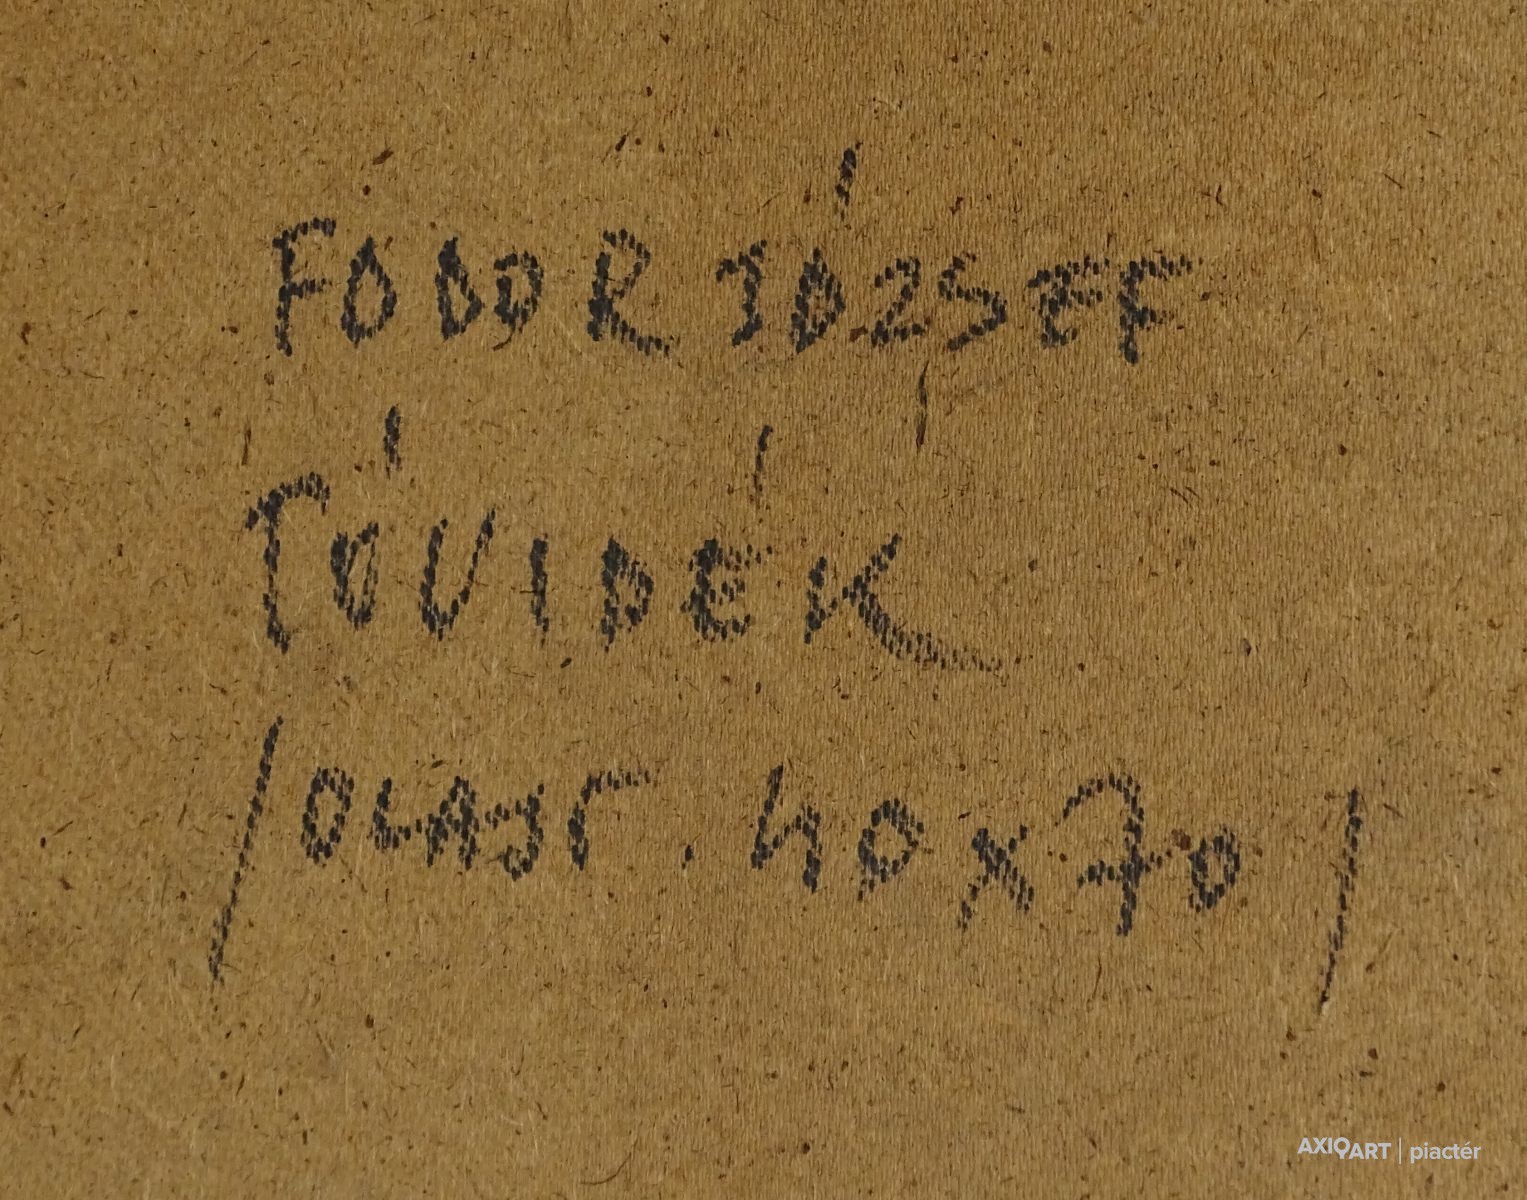 FODOR JÓZSEF
TÓVIDÉK
/OLAJT. 40 x 70/
AXIOART | piactér